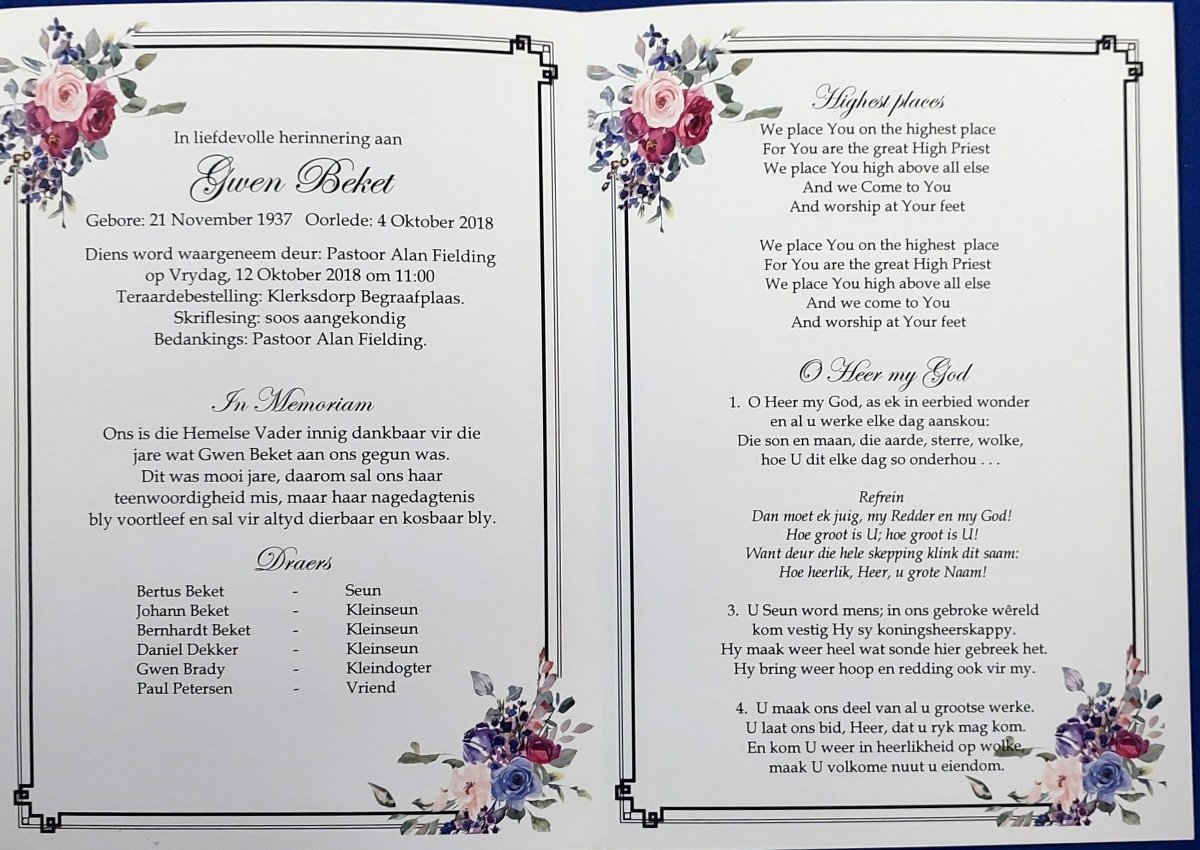 In liefdevolle herinnering aan
Gwen Beket
Gebore: 21 November 1937 Oorlede: 4 Oktober 2018
Diens word waargeneem deur: Pastoor Alan Fielding
op Vrydag, 12 Oktober 2018 om 11:00
Teraardebestelling: Klerksdorp Begraafplaas.
Skriflesing: soos aangekondig
Bedankings: Pastoor Alan Fielding.
In Memoriam
Ons is die Hemelse Vader innig dankbaar vir die
jare wat Gwen Beket aan ons gegun was.
Dit was mooi jare, daarom sal ons haar
teenwoordigheid mis, maar haar nagedagtenis
bly voortleef en sal vir altyd dierbaar en kosbaar wees.
Draers
Bertus Beket - Seun
Johann Beket - Kleinseun
Bernhardt Beket - Kleinseun
Daniel Dekker - Kleinseun
Gwen Brady - Kleindogter
Paul Petersen - Vriend
Highest places
We place You on the highest place
For You are the great High Priest
We place You high above all else
And we Come to You
And worship at Your feet
We place You on the highest place
For You are the great High Priest
We place You high above all else
And we come to You
And worship at Your feet
O Heer my God
1. O Heer my God, as ek in eerbied wonder
en al u werke elke dag aanskou:
Die son en maan, die aarde, sterre, wolke,
hoe U dit elke dag so onderhou . . .
Refrein
Dan moet ek juig, my Redder en my God!
Hoe groot is U; hoe groot is U!
Want deur die hele skepping klink dit saam:
Hoe heerlik, Heer, u grote Naam!
3. U Seun word mens; in ons gebroke wêreld
kom vestig Hy sy koningsheerskappy.
Hy maak weer heel wat sonde hier gebreek het.
Hy bring weer hoop en redding ook vir my.
4. U maak ons deel van al u grootse werke.
U laat ons bid, Heer, dat u ryk mag kom.
En kom U weer in heerlikheid op wolke,
maak U volkome nuut u eiendom.